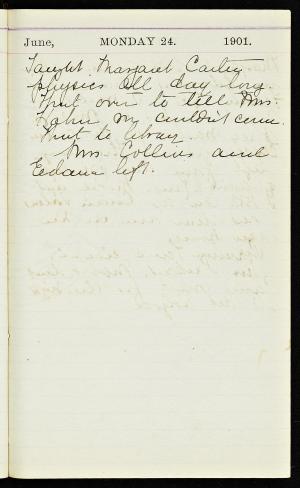 June, MONDAY 24. 1901.
Taught Margaret Carter
physics all day long.
Went over to tell Mrs.
Hahn why couldn't come.
Went to library.
Mrs Collins and
Edana left.